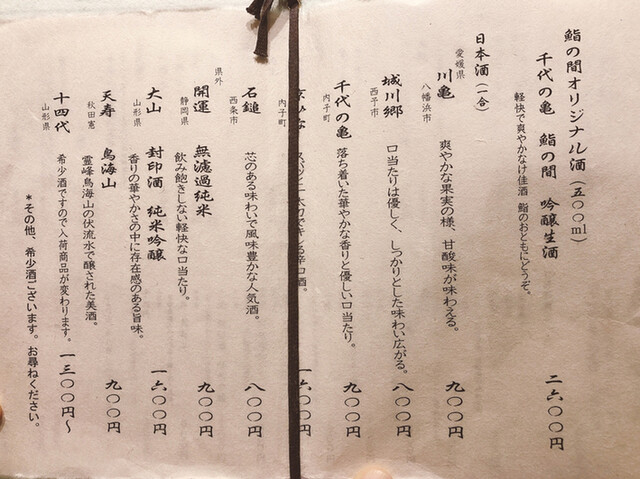 鮨の間オリジナル酒（五〇〇ml）
千代の亀　鮨の間　吟醸生酒　二六〇〇円
軽快で爽やかなけ佳酒　鮨のおともにどうぞ。
日本酒（一合）
愛媛県
川亀　爽やかな果実の様、甘酸味が味わえる。　九〇〇円
八幡浜市
城川郷　口当たりは優しく、しっかりとした味わい広がる。　八〇〇円
西予市
千代の亀　落ち着いた華やかな香りと優しい口当たり。　九〇〇円
内子町
一六〇〇円
内子町
石鎚　芯のある味わいで風味豊かな人気酒。　八〇〇円
西条市
県外
開運　無濾過純米　飲み飽きしない軽快な口当たり。　九〇〇円
静岡県
大山　封印酒　純米吟醸　香りの華やかさの中に存在感のある旨味。　一六〇〇円
山形県
天寿　鳥海山　霊峰鳥海山の伏流水で醸された美酒。　九〇〇円
秋田憲
十四代　希少酒ですので入荷商品が変わります。　一三〇〇円〜
山形県
＊その他、希少酒ございます。お尋ねください。